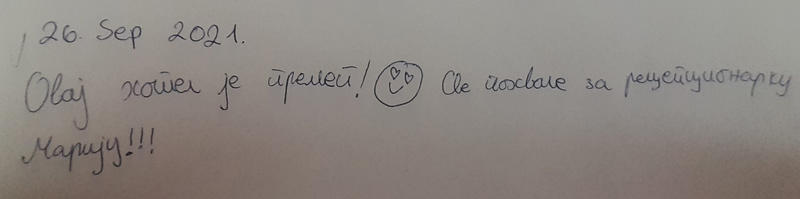 26. Sep 2021.
Овај хотел је прелеп! Све похвале за рецепционарку
Марију!!!